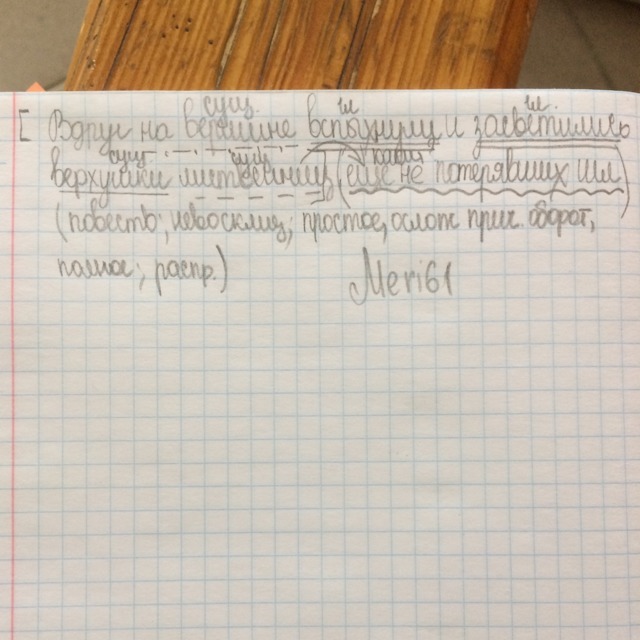 сущ. гл. гл.
[ Вдруг на вершине вспыхнули и засветились
сущ. сущ.
верхушки лиственниц] (ещё не потерявших
(повеств., невосклиц., простое, ослож. прич. оборот,
полное, распр.) Meri61